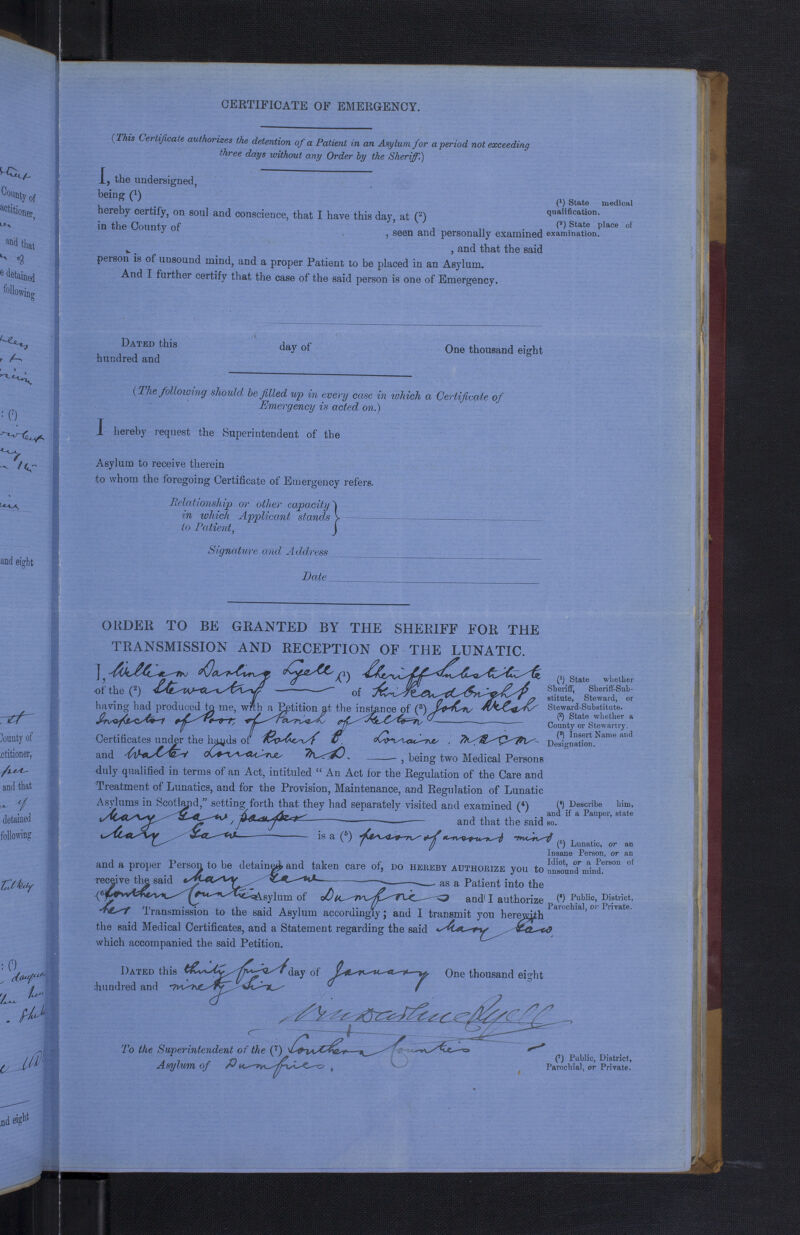 CERTIFICATE OF EMERGENCY.
(This Certificate authorizes the detention of a Patient in an Asylum for a period not exceeding
three days without any Order by the Sheriff.)
I, the undersigned,
being (¹)
hereby certify, on soul and conscience, that I have this day, at (²)
in the County of , seen and personally examined
, and that the said
person is of unsound mind, and a proper Patient to be placed in an Asylum.
And I further certify that the case of the said person is one of Emergency.
(¹) State medical
qualification.
(²) State place of
examination.
DATED this day of One thousand eight
hundred and
(The following should be filled up in every case in which a Certificate of
Emergency is acted on.)
I hereby request the Superintendent of the
Asylum to receive therein
to whom the foregoing Certificate of Emergency refers.
Relationship or other capacity
in which Applicant stands
to Patient,
Signature and Address
Date
ORDER TO BE GRANTED BY THE SHERIFF FOR THE
TRANSMISSION AND RECEPTION OF THE LUNATIC.
I, William Darling Lyell (¹) Sheriff Substitute
of the (²) Stewartry of Kirkcudbright
having had produced to me, with a Petition at the instance of (³) John Welsh
Inspector of Poor, of Parish of Kelton
Certificates under the hands of Robert B Lorraine . M.B C M
and Walter Lorraine M.D. , being two Medical Persons
duly qualified in terms of an Act, intituled “ An Act for the Regulation of the Care and
Treatment of Lunatics, and for the Provision, Maintenance, and Regulation of Lunatic
Asylums in Scotland,” setting forth that they had separately visited and examined (⁴)
Mary Gaw, pauper and that the said
Mary Gaw is a (⁵) person of unsound mind
and a proper Person to be detained and taken care of, DO HEREBY AUTHORIZE you to
receive the said Mary Gaw as a Patient into the
(⁶) Southern Counties Asylum of Dumfries and I authorize
her Transmission to the said Asylum accordingly; and I transmit you herewith
the said Medical Certificates, and a Statement regarding the said Mary Gaw,
which accompanied the said Petition.
(¹) State whether
Sheriff, Sheriff-Sub-
stitute, Steward, or
Steward-Substitute.
(²) State whether a
County or Stewartry.
(³) Insert Name and
Designation.
(⁴) Describe him,
and if a Pauper, state
so.
(⁵) Lunatic, or an
Insane Person, or an
Idiot, or a Person of
unsound mind.
(⁶) Public, District,
Parochial, or Private.
DATED this thirty first day of January One thousand eight
hundred and ninety Six
Wm Darling Lyell
To the Superintendent of the (⁷) Southern Counties
Asylum of Dumfries.
(⁷) Public, District,
Parochial, or Private.
County of
and that
e detained
following
and eight
County of
ctitioner,
and that
detained
following
nd eight